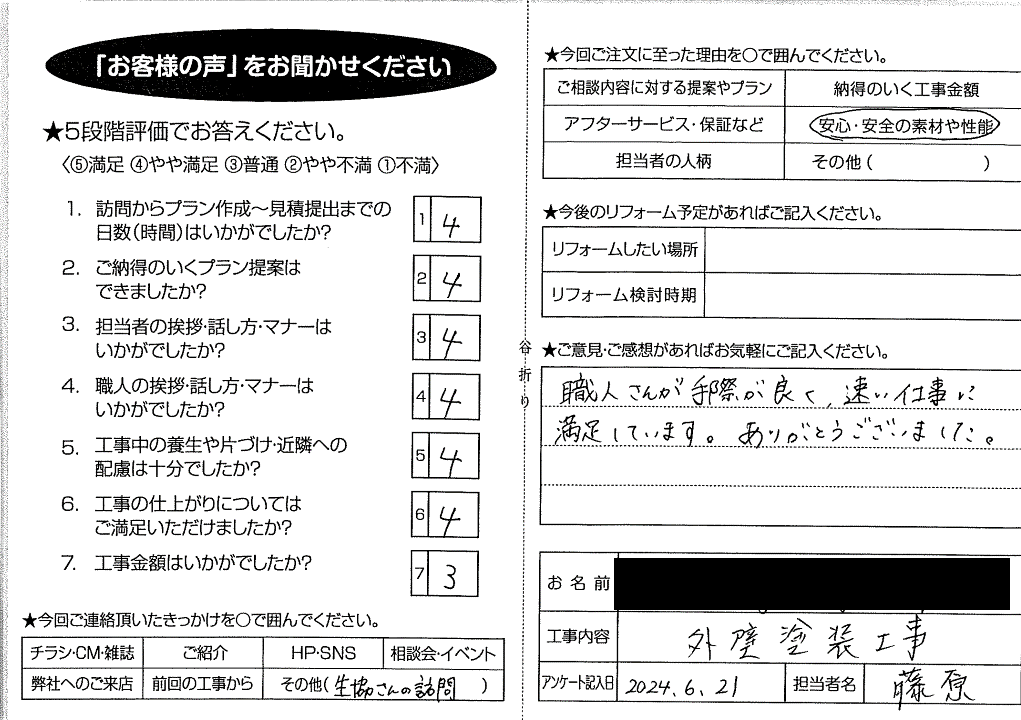 「お客様の声」をお聞かせください
★5段階評価でお答えください。
〈⑤満足 ④やや満足 ③普通 ②やや不満 ①不満〉
1. 訪問からプラン作成～見積提出までの
日数(時間)はいかがでしたか?
1 4
2. ご納得のいくプラン提案は
できましたか?
2 4
3. 担当者の挨拶・話し方・マナーは
いかがでしたか?
3 4
4. 職人の挨拶・話し方・マナーは
いかがでしたか?
4 4
5. 工事中の養生や片づけ・近隣への
配慮は十分でしたか?
5 4
6. 工事の仕上がりについては
ご満足いただけましたか?
6 4
7. 工事金額はいかがでしたか?
7 3
★今回ご連絡頂いたきっかけを○で囲んでください。
チラシ・CM・雑誌 ご紹介 HP・SNS 相談会・イベント
弊社へのご来店 前回の工事から その他(生協さんの訪問)
谷折り
★今回ご注文に至った理由を○で囲んでください。
ご相談内容に対する提案やプラン 納得のいく工事金額
アフターサービス・保証など 安心・安全の素材や性能
担当者の人柄 その他( )
★今後のリフォーム予定があればご記入ください。
リフォームしたい場所
リフォーム検討時期
★ご意見・ご感想があればお気軽にご記入ください。
職人さんが手際が良く、速い仕事に
満足しています。ありがとうございました。
お名前
工事内容 外壁塗装工事
アンケート記入日 2024.6.21 担当者名 藤原